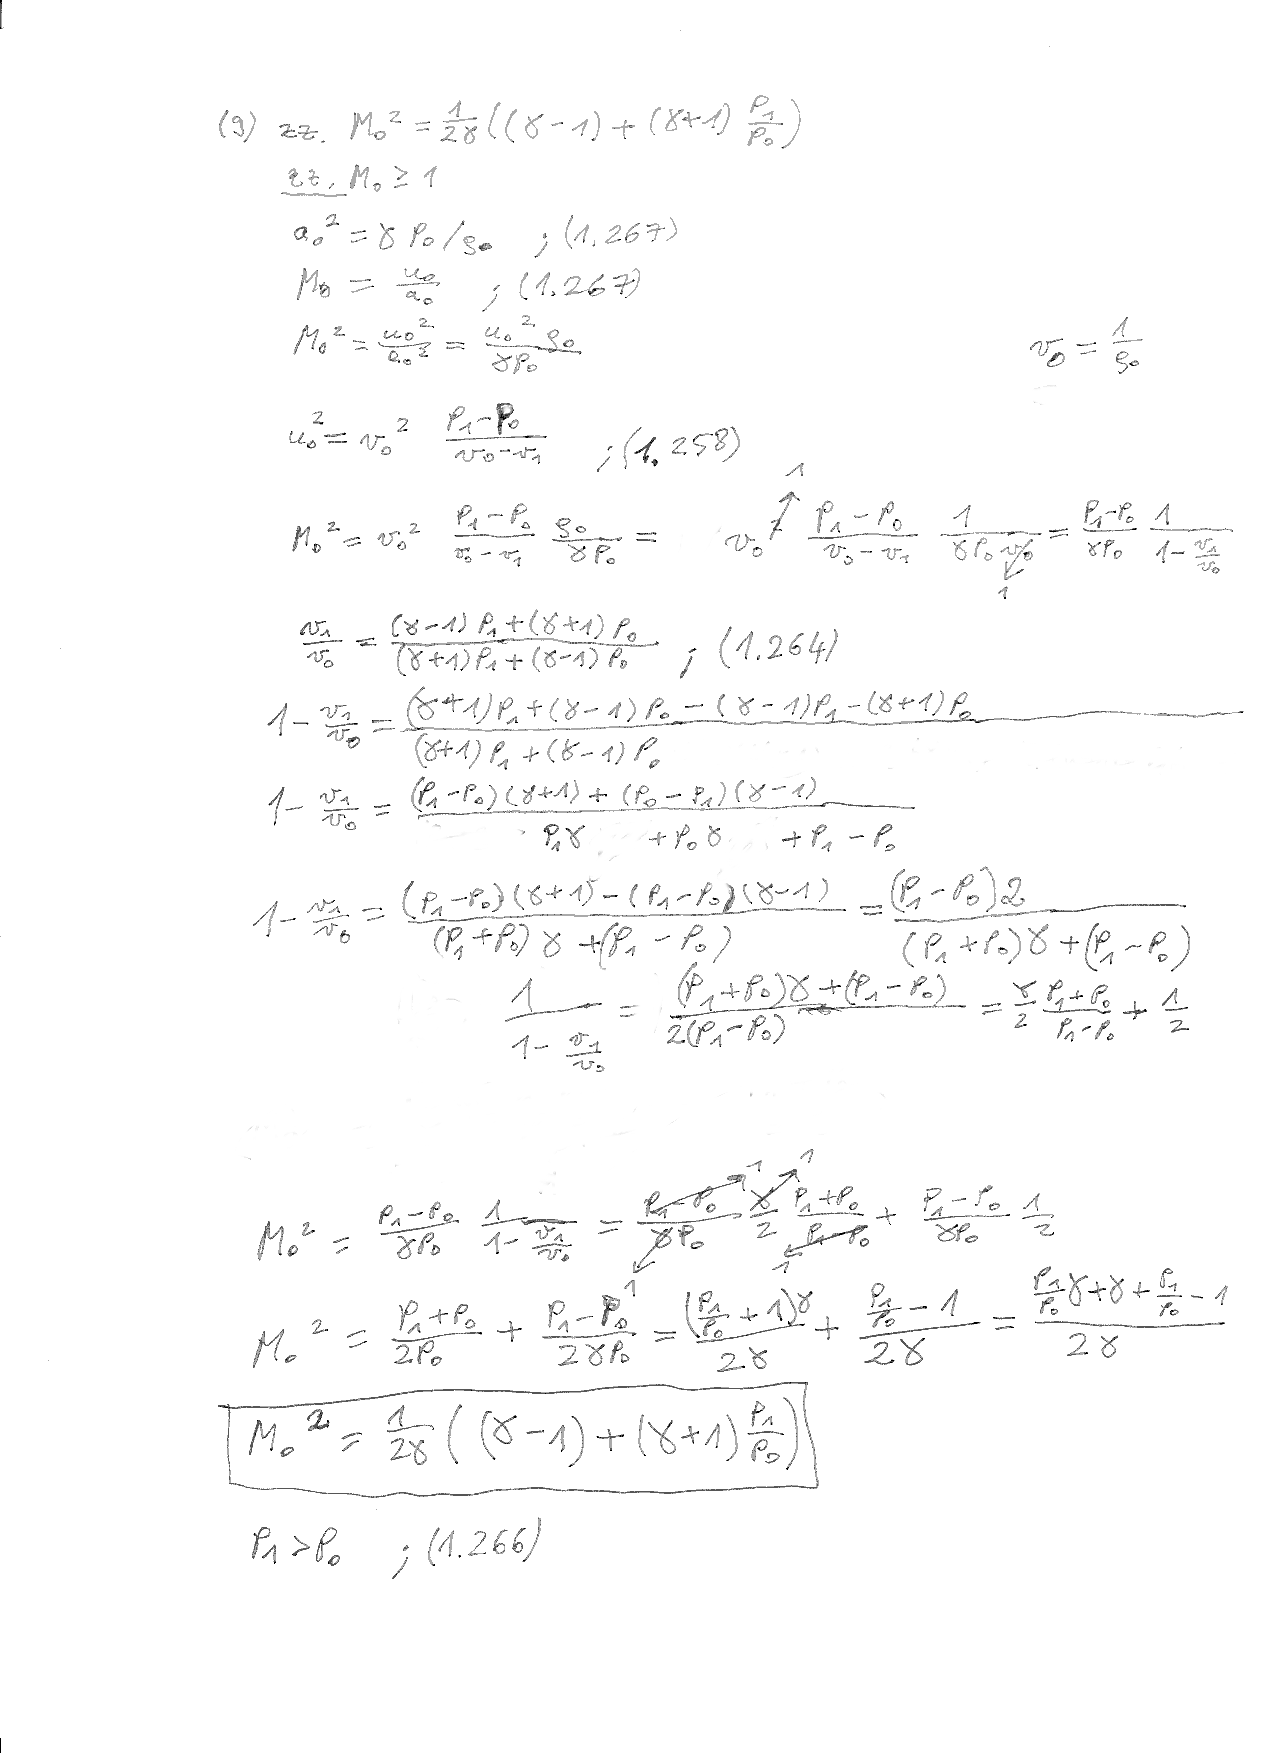 (9) zz. M₀² = 1/2γ ((γ-1) + (γ+1) P₁/P₀)
zz. M₀ ≥ 1
a₀² = γ P₀/ρ₀ ; (1.267)
M₀ = u₀/a₀ ; (1.267)
M₀² = u₀²/a₀² = u₀² ρ₀/γP₀ v₀ = 1/ρ₀
u₀² = v₀² (P₁-P₀)/(v₀-v₁) ; (1.258)
M₀² = v₀² (P₁-P₀)/(v₀-v₁) ρ₀/γP₀ = v₀² ↗1 (P₁-P₀)/(v₀-v₁) 1/(γP₀ v₀ ↙1) = (P₁-P₀)/γP₀ 1/(1-v₁/v₀)
v₁/v₀ = ((γ-1)P₁+(γ+1)P₀)/((γ+1)P₁+(γ-1)P₀) ; (1.264)
1-v₁/v₀ = ((γ+1)P₁+(γ-1)P₀-(γ-1)P₁-(γ+1)P₀)/((γ+1)P₁+(γ-1)P₀)
1-v₁/v₀ = ((P₁-P₀)(γ+1)+(P₀-P₁)(γ-1))/(P₁γ+P₀γ+P₁-P₀)
1-v₁/v₀ = ((P₁-P₀)(γ+1)-(P₁-P₀)(γ-1))/((P₁+P₀)γ+(P₁-P₀)) = (P₁-P₀)2/((P₁+P₀)γ+(P₁-P₀))
1/(1-v₁/v₀) = ((P₁+P₀)γ+(P₁-P₀))/2(P₁-P₀) = γ/2 (P₁+P₀)/(P₁-P₀) + 1/2
M₀² = (P₁-P₀)/γP₀ 1/(1-v₁/v₀) = (P₁-P₀ ↗1)/(γ ↙1 P₀) (γ ↗1)/2 (P₁+P₀)/(P₁-P₀ ↙1) + (P₁-P₀)/γP₀ 1/2
M₀² = (P₁+P₀)/2P₀ + (P₁-P₀)/2γP₀ = (P₁/P₀+1)γ/2γ + (P₁/P₀-1)/2γ = (P₁/P₀ γ+γ+P₁/P₀-1)/2γ
M₀² = 1/2γ ((γ-1)+(γ+1) P₁/P₀)
P₁>P₀ ; (1.266)